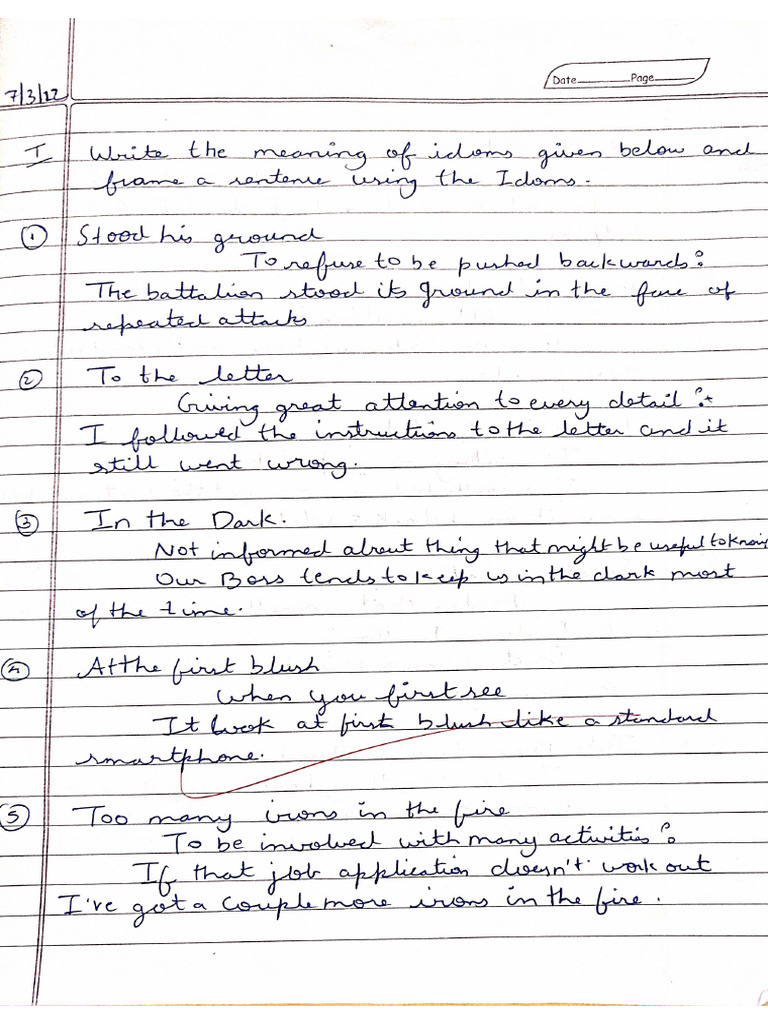 Date Page
7/3/22
I Write the meaning of idoms given below and
frame a sentence using the Idoms.
① Stood his ground
To refuse to be pushed backwards:
The battalion stood its ground in the face of
repeated attacks
② To the letter
Giving great attention to every detail :
I followed the instructions to the letter and it
still went wrong.
③ In the Dark.
Not informed about thing that might be useful to know
Our Boss tends to keep us in the dark most
of the time.
④ At the first blush
When you first see
It look at first blush like a standard
smartphone.
⑤ Too many irons in the fire
To be involved with many activities :
If that job application doesn't work out
I've got a couple more irons in the fire.